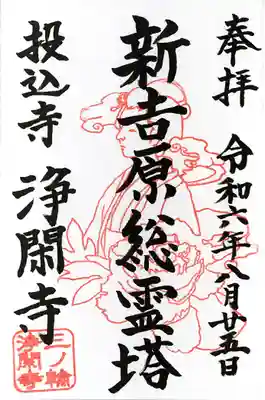 奉拝
令和六年八月廿五日
新吉原総霊塔
投込寺
浄閑寺
三ノ輪
浄閑寺